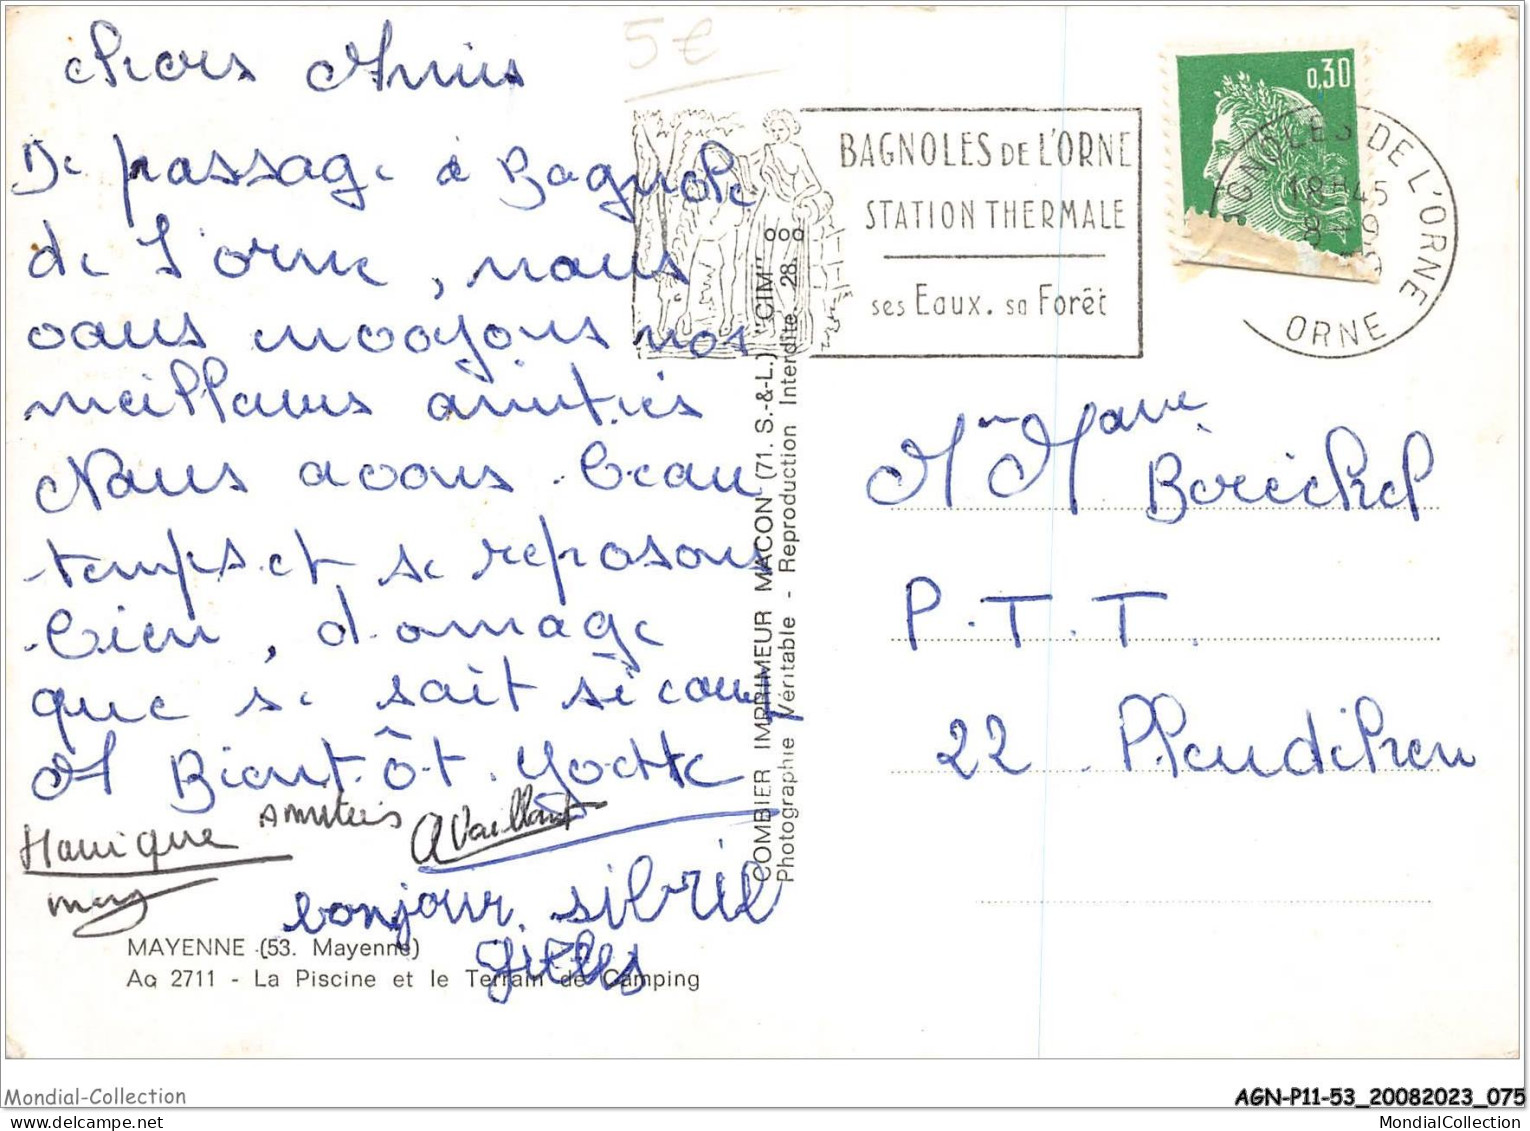 5€
chers Amis
De passage à Bagnole
de l'orne, nous
vous envoyons nos
meilleurs amitiés
Nous avons beau
temps et se reposons
bien, domage
que se sait si court
A Bientôt. Yvette
Amitiés
A Vaillant
Monique
bonjour. sibril
Gilles
MAYENNE (53. Mayenne)
Aq 2711 - La Piscine et le Terrain de Camping
COMBIER IMPRIMEUR MACON (71. S.-&-L.) "CIM"
Photographie Véritable - Reproduction Interdite 28.
BAGNOLES DE L'ORNE
STATION THERMALE
ses Eaux. sa Forêt
0,30
GNOLES DE L'ORNE
18H45
ORNE
P.T.T.
22 Pleudihen
Mondial-Collection
AGN-P11-53_20082023_075
http://www.delcampe.net
MondialCollection